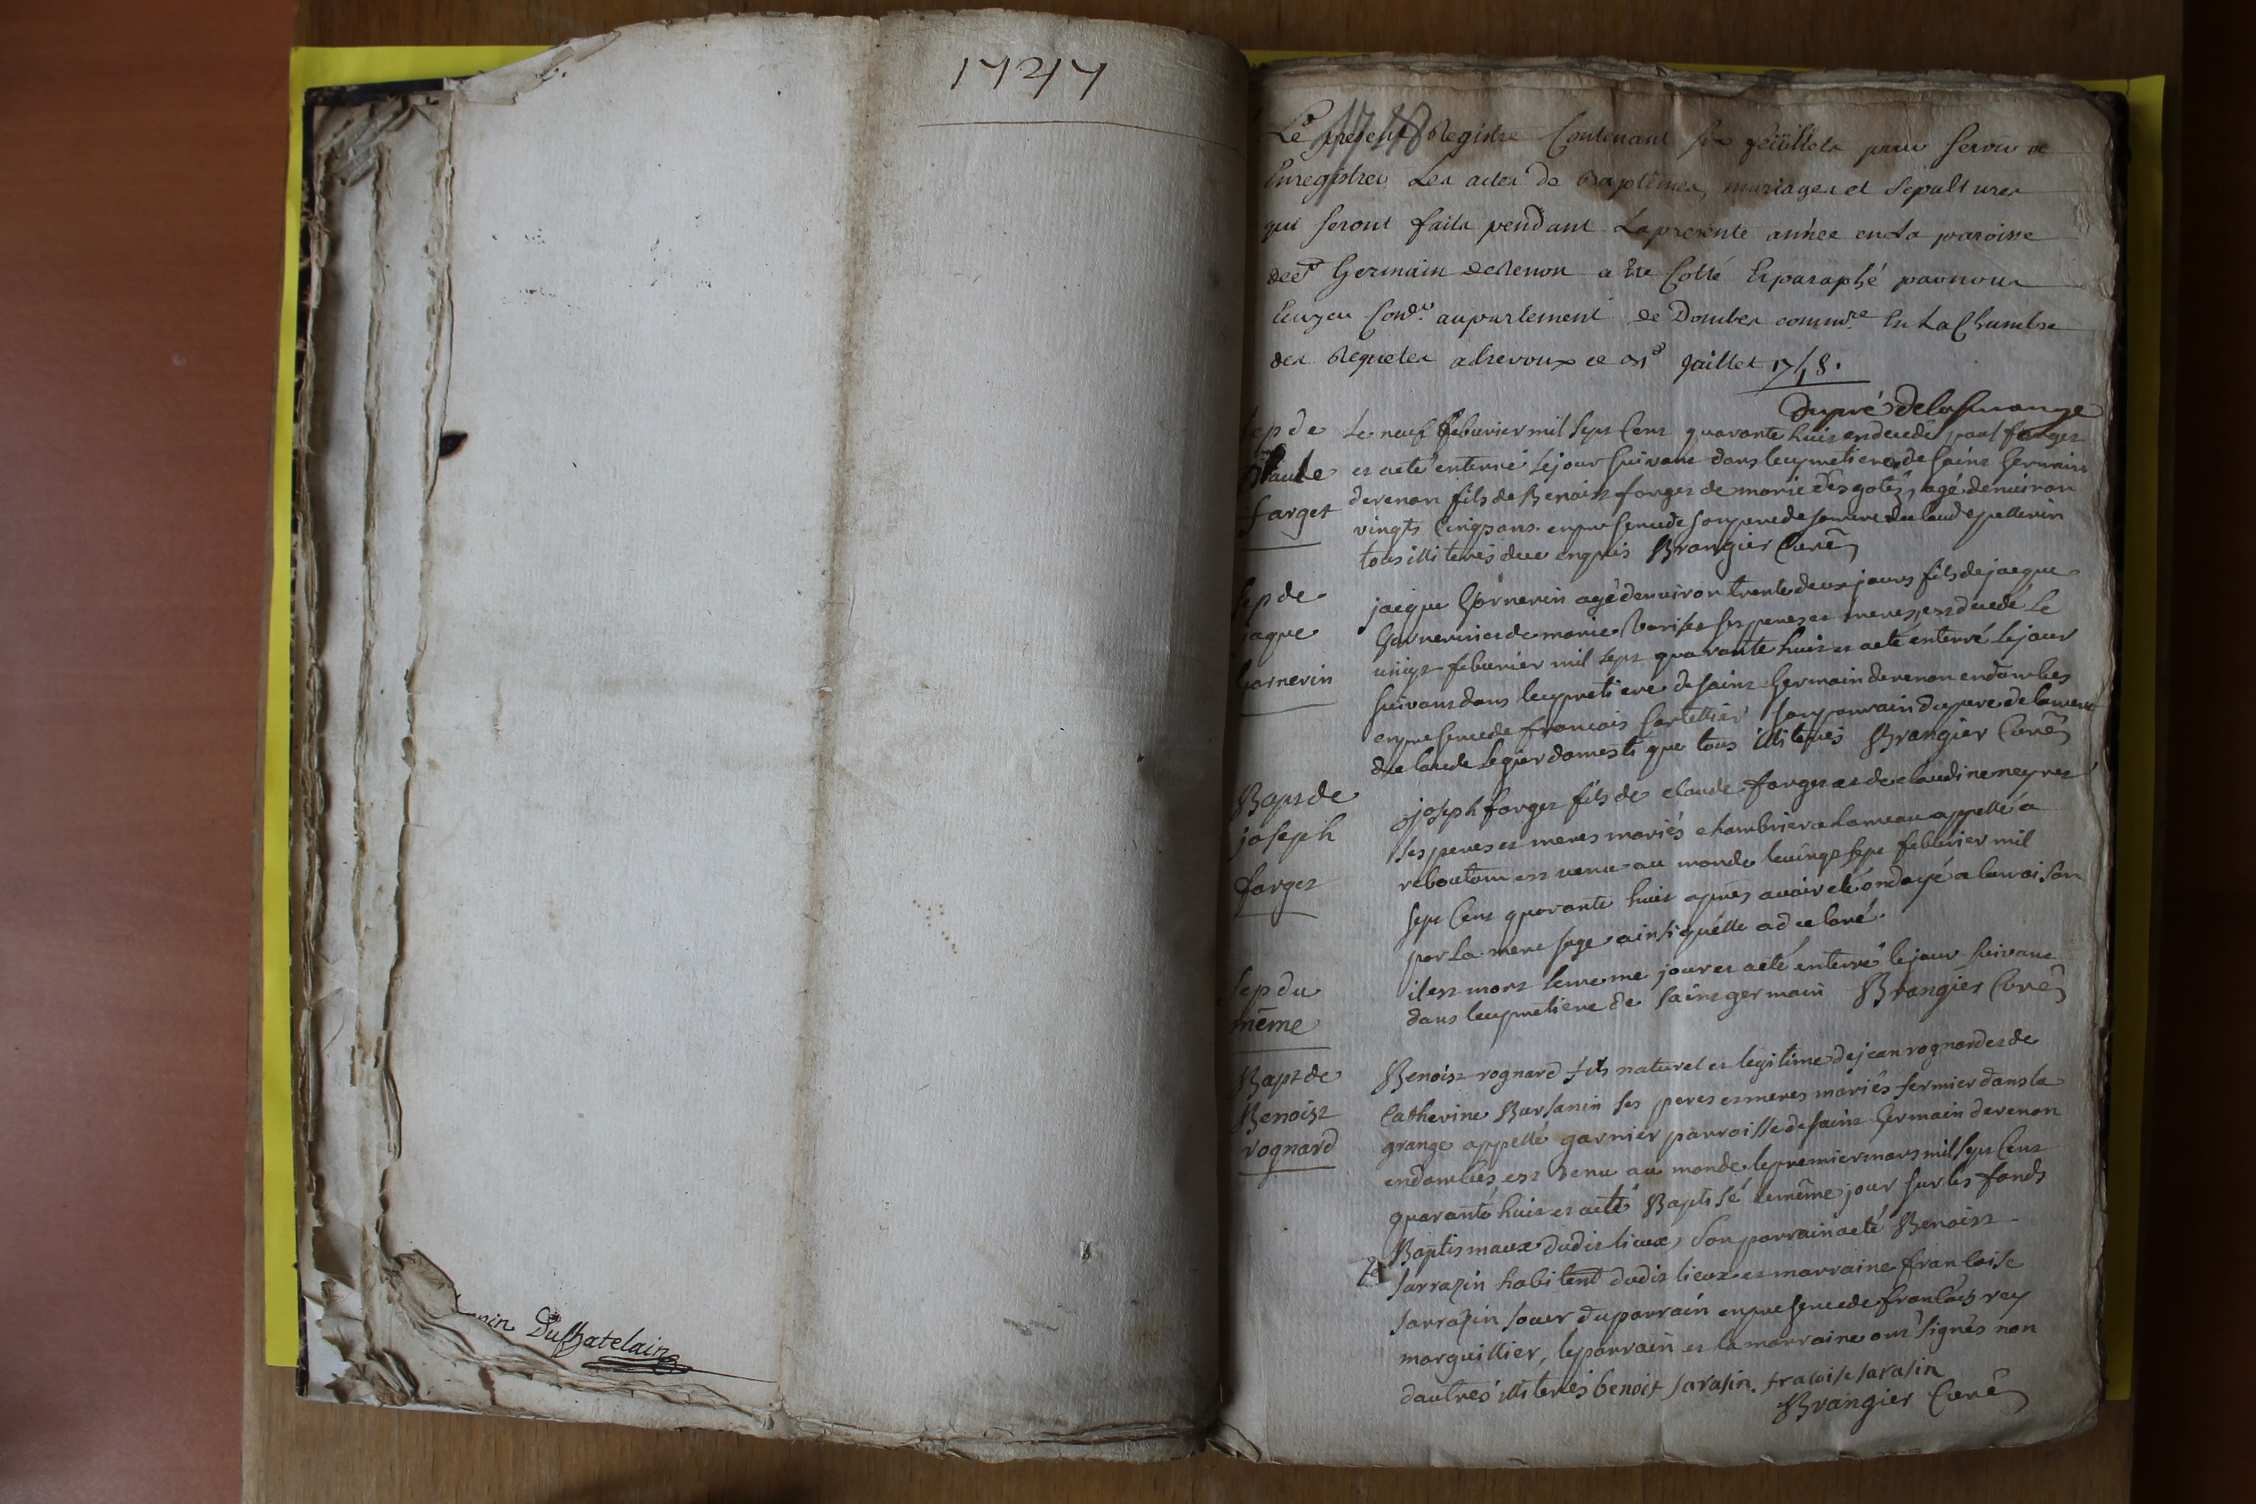 1747
Duchatelain
1748
Le present Registre Contenant six feüillets pour servir a
Enregistrer Les actes de Baptêmes, mariages et Sépultures
qui seront faits pendant La presente année en La paroisse
de St Germain de Renon a Eté Cotté Et paraphé par nous
Ecuyer Conser au parlement de Dombes commre En La Chambre
des Requetes a Trevoux ce Juillet 1748.
Sep de
Claude
farget
Le neuf feburier mil sept Cent quarante huit en decedé paul farget
et a eté enterré le jour suivant dans le cymetiere de saint Germain
de renon fils de Benoist farget de marie desgotes, agé denuiron
vingts Cinq ans en presence de son pere de son frere de claude pellerin
tous illiterés de ce enquis Brangier Curé
Sep de
jaque
Garnerin
jacque Garnerin agé denuiron trente deux jours fils de jacque
Garnerin et de marie ses peres et meres, est decedé Le
uingt feburier mil sept quarante huit et a eté enterré le jour
suivant dans le cymetiere de saint Germain de renon en dombes
en presence de francois son parrain du pere de la mere
de claude legier domestique tous illiterés Brangier Curé
Bapt de
joseph
farget
joseph farget fils de claude farget et de claudine neyret
ses peres et meres mariés au hameau appellé a
est venu au monde le uingt sept feburier mil
sept Cent quarante huit apres avoir eté ondoyé a la maison
par La mere sage ainsi quelle a declaré.
Sep du
même
il est mort le meme jour et a eté enterré le jour suivant
dans le cymetiere de saint germain Brangier Curé
Bapt de
Benoist
rognard
Benoist rognard fils naturel et legitime de jean rognard et de
Catherine Barsanin ses peres et meres mariés fermier dans la
grange appellé garnier parroisse de saint Germain de renon
en dombes est venu au monde le premier mars mil sept Cent
quarante huit et a eté Baptisé le même jour sur les fonds
Baptismaux dudit lieux, son parrain a eté Benoist
sarrazin habitent dudit lieux et marraine francoise
sarrazin soeur du parrain en presence de francois rey
marguillier, le parrain et la marraine ont signés non
d'autres illiterés benoit sarasin. fracoise sarasin
Brangier Curé